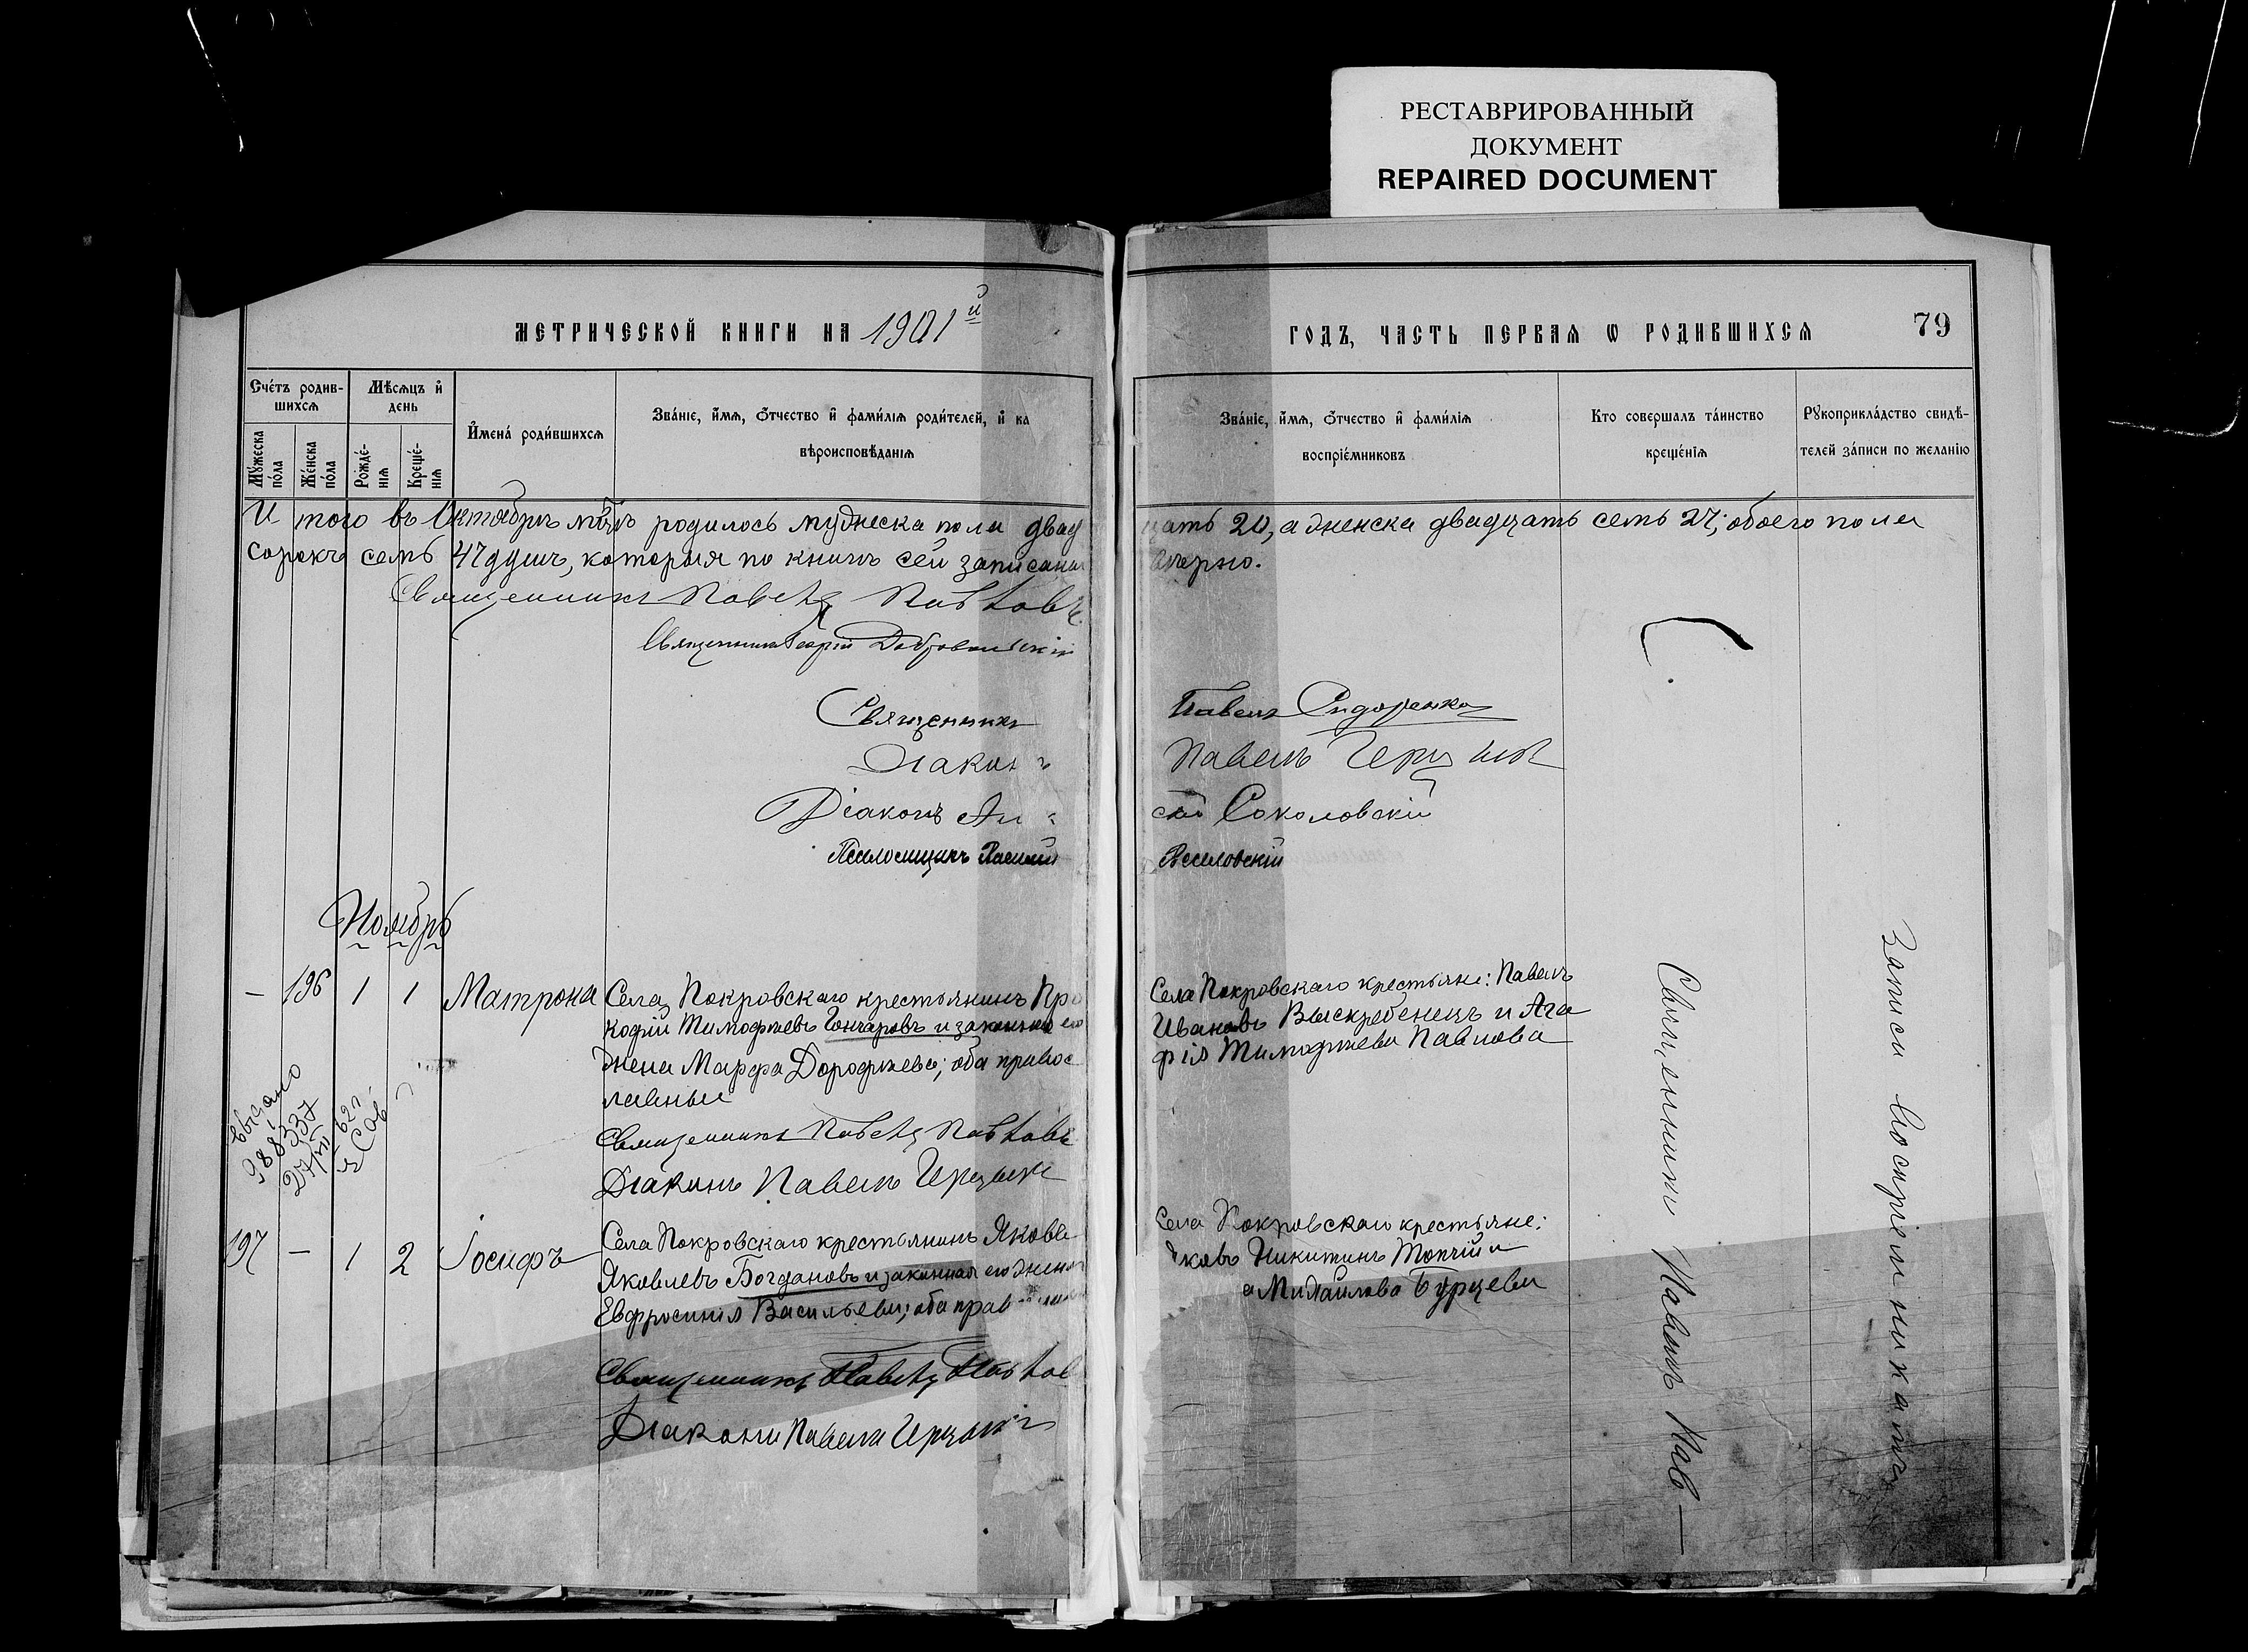 РЕСТАВРИРОВАННЫЙ
ДОКУМЕНТ
REPAIRED DOCUMENT
МЕТРИЧЕСКОЙ КНИГИ НА 1901й
ГОДЪ, ЧАСТЬ ПЕРВАѦ Ѡ РОДИВШИХСѦ
79
Счéтъ родив-
шихсѧ
Мѣсѧцъ и҆
день
Мꙋ́жеска
по́ла
Же́нска
по́ла
Рожде́-
нїѧ
Креще́-
нїѧ
И҆мена́ роди́вшихсѧ
Зва́нїе, и҆́мѧ, ѻ҆́тчество и҆ фами́лїѧ роди́телей, и҆ ка
вѣроисповѣ́данїѧ
Зва́нїе, и҆́мѧ, ѻ҆́тчество и҆ фами́лїѧ
воспрїе́мниковъ
Кто совершалъ та́инство
креще́нїѧ
Рꙋкоприкла́дство свидѣ́-
телей за́писи по жела́нїю
И того въ Октябрѣ мѣсяцѣ родилось мужеска пола двад
цать 20, а женска двадцать семь 27; обоего пола
сорокъ семь 47 душъ, которыя по книгѣ сей записаны
вѣрно.
Священникъ Павелъ Павловъ
Священникъ Георгій Добровольскій
Священникъ
Павелъ Сидоренко
Діаконъ
Павелъ
Діаконъ
Соколовскій
Псаломщикъ Василій
Веселовскій
Ноябрь
— 196 1 1 Матрона
Села Покровскаго крестьянинъ Про
кофій Тимофѣевъ Гончаровъ и законная его
жена Марфа Дорофѣева; оба правос
лавные
Священникъ Павелъ Павловъ
Діаконъ Павелъ
Села Покровскаго крестьяне: Павелъ
Ивановъ Выскребенецъ и Ага
фія Тимофѣева Павлова
выдано
27/VII 62 г.
197 — 1 2 Іосифъ
Села Покровскаго крестьянинъ Яковъ
Яковлевъ Богдановъ и законная его жена
Евфросинія Васильева; оба прав
Священникъ Павелъ Павлов
Діаконъ Павелъ
Села Покровскаго крестьяне:
ковъ Никитинъ Топчій и
Михайлова Бурцева
Священникъ Павелъ Пав—
Записи воспріемниками